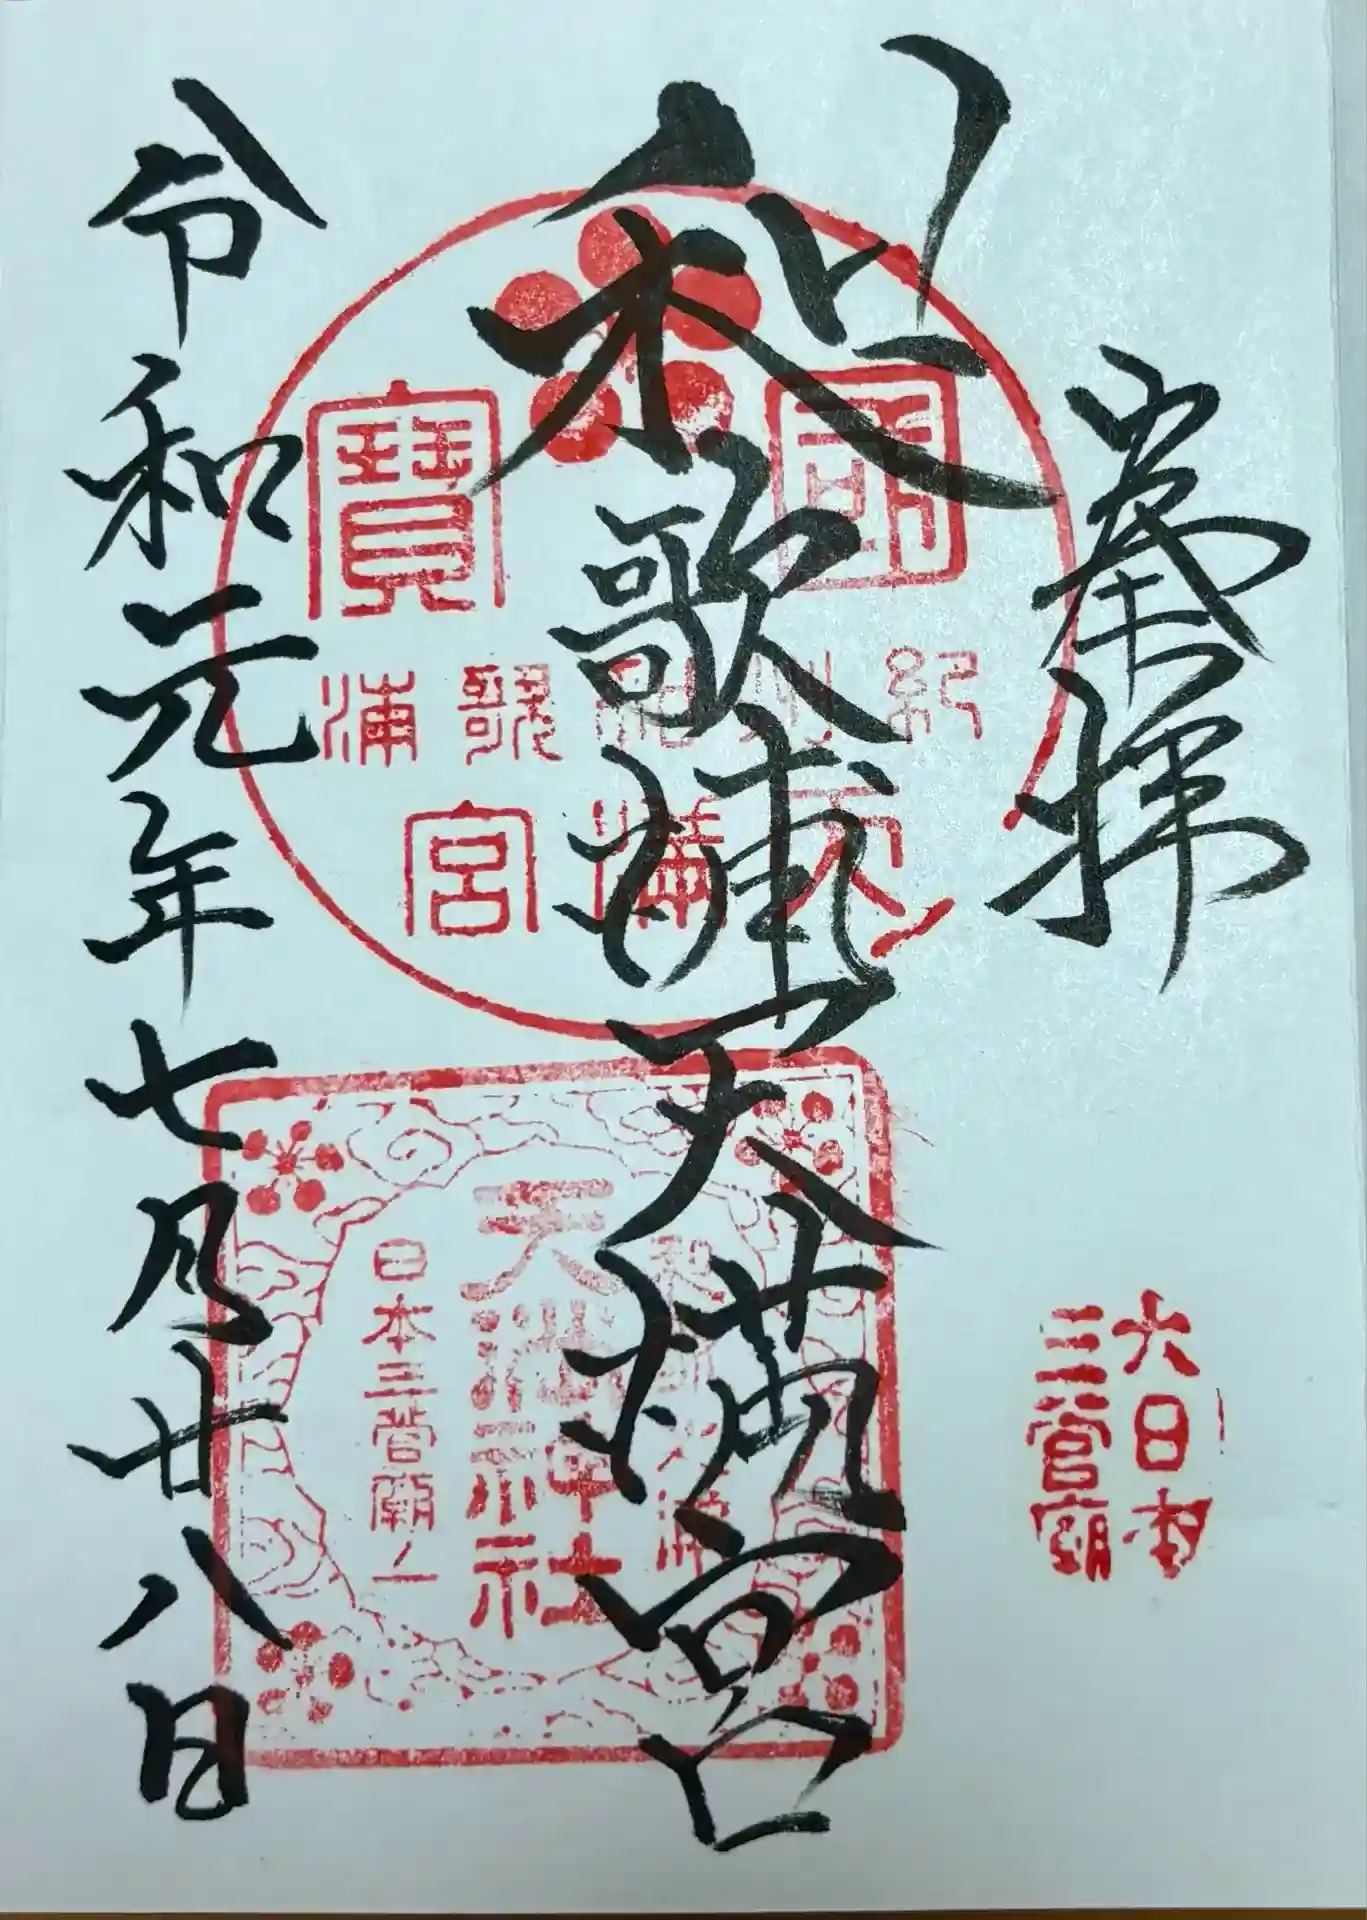 奉拝
大日本
三菅廟
和歌浦天満宮
國寳
紀州和歌浦
天満宮
和歌浦
天満神社
日本三菅廟ノ一
令和元年七月廿八日